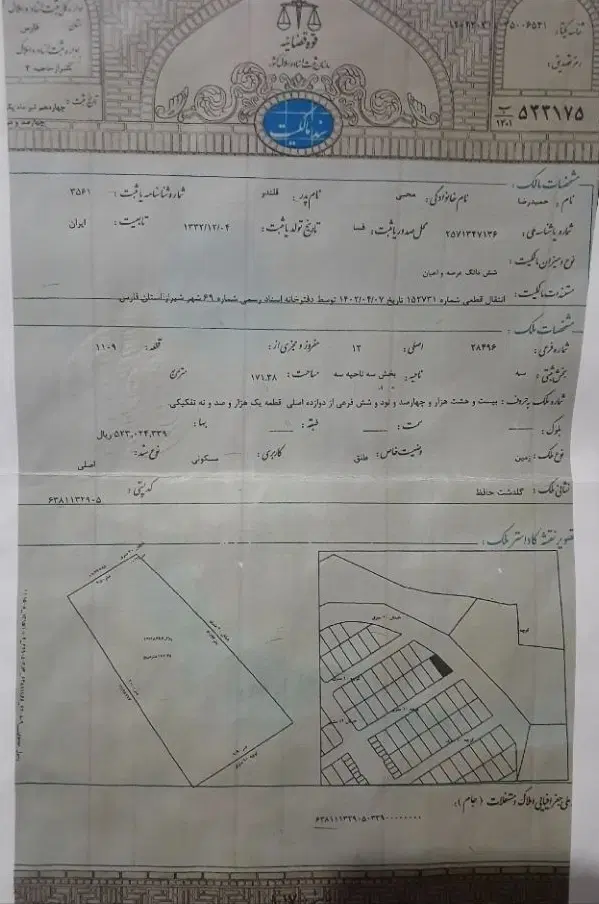 قوه قضائیه
سازمان ثبت اسناد و املاک کشور
سند مالکیت
فارس
شناسه یکتا:
رمز تصدیق:
تاریخ ثبت: چهاردهم تیر ماه یک
۵۴۳۱۷۵ ب ۱۴۰۱
مشخصات مالک:
نام: حمیدرضا نام خانوادگی: محبی نام پدر: قلندر شماره شناسنامه یا ثبت: ۳۵۶۱
شماره یا شناسه ملی: ۲۵۷۱۳۴۷۱۳۶ محل صدور یا ثبت: فسا تاریخ تولد یا ثبت: ۱۳۳۲/۱۲/۰۴ تابعیت: ایران
نوع و میزان مالکیت:
شش دانگ عرصه و اعیان
مستندات مالکیت: انتقال قطعی شماره ۱۵۲۷۳۱ تاریخ ۱۴۰۲/۰۴/۰۷ توسط دفترخانه اسناد رسمی شماره ۶۹ شهر شیراز استان فارس
مشخصات ملک:
شماره فرعی: ۲۸۴۹۶ اصلی: ۱۲ مفروز و مجزی از: قطعه: ۱۱۰۹
بخش ثبتی: سه ناحیه: بخش سه ناحیه سه مساحت: ۱۷۱.۳۸ مترمربع
شماره ملک به حروف: بیست و هشت هزار و چهارصد و نود و شش فرعی از دوازده اصلی قطعه یک هزار و صد و نه تفکیکی.
بلوک: سمت: طبقه: بها: ۵۲۳,۰۲۴,۳۳۹ ریال
نوع ملک: زمین وضعیت خاص: طلق کاربری: مسکونی نوع سند: اصلی
نشانی ملک: گلدشت حافظ کد پستی: ۶۳۸۱۱۳۲۹۰۵
تصویر نقشه کاداستر ملک:
کوچه
ملی جغرافیایی املاک و مستغلات (جام):
۶۳۸۱۱۳۲۹۰۵۰۳۳۹۰۰۰۰۰۰۰۰